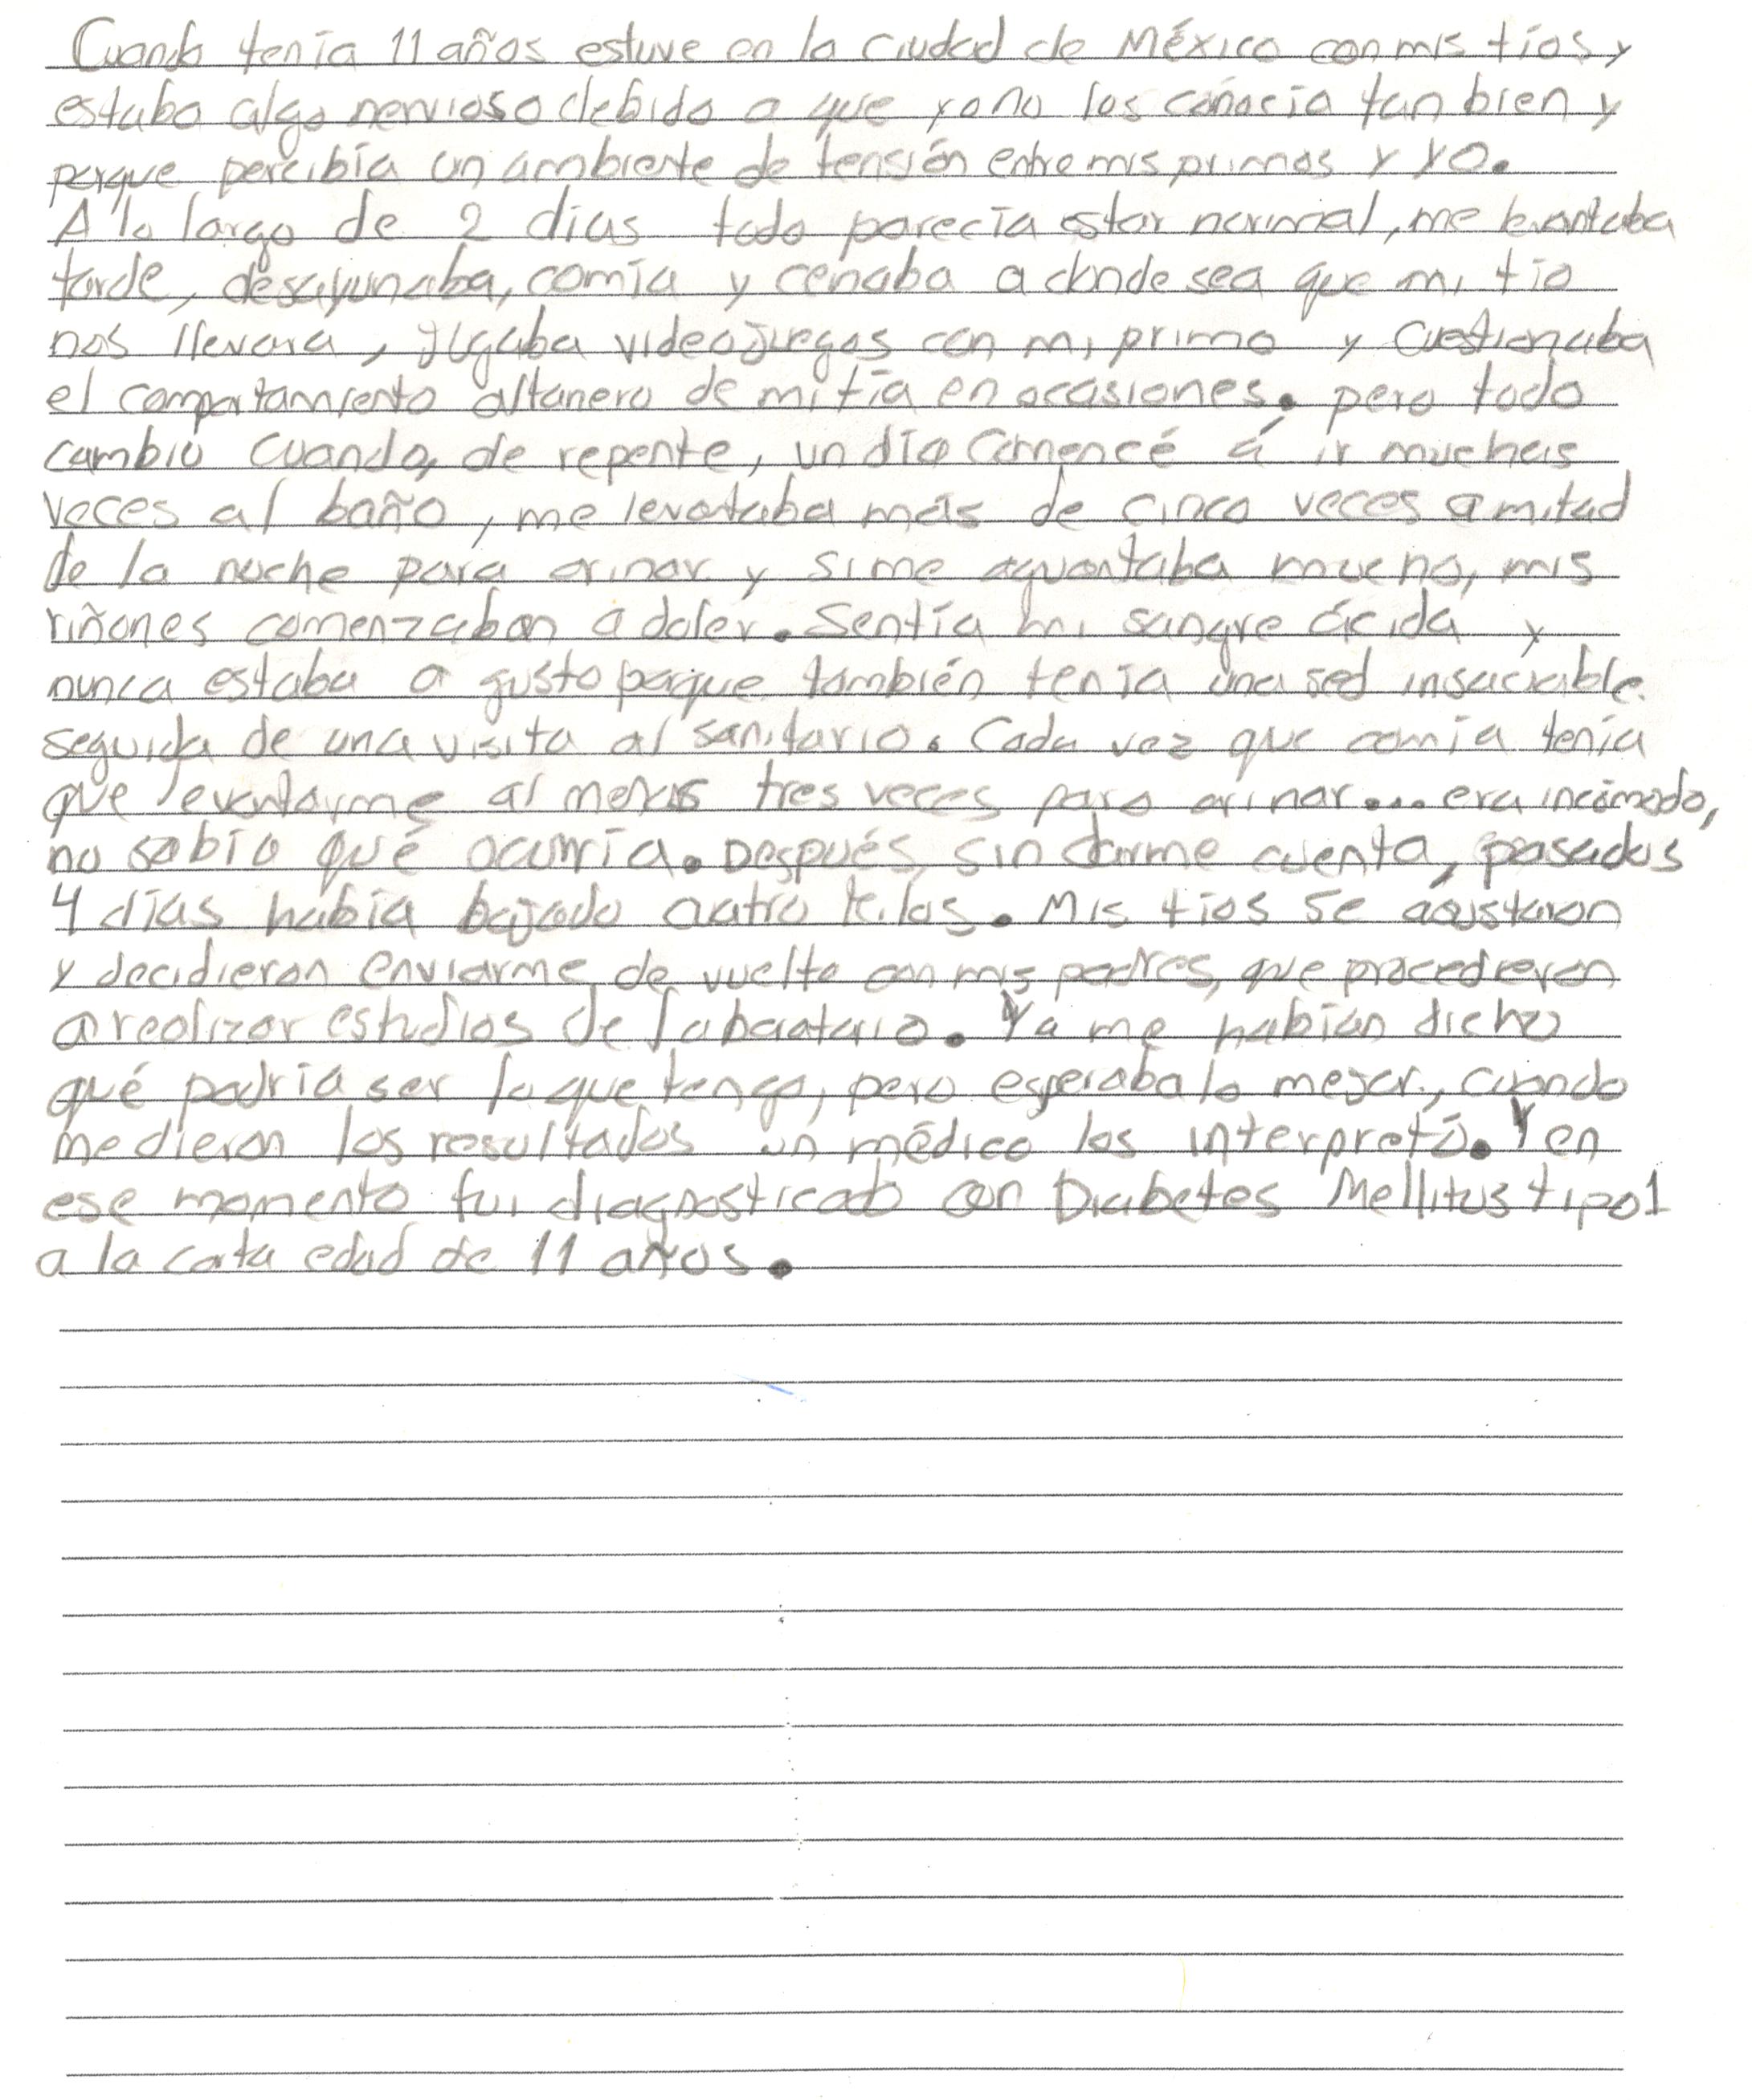 Cuando tenía 11 años estuve en la Ciudad de México con mis tíos y
estaba algo nervioso debido a que yo no los conocía tan bien y
porque percibía un ambiente de tensión entre mis primos y yo.
A lo largo de 2 días todo parecía estar normal, me levantaba
tarde, desayunaba, comía y cenaba a donde sea que mi tío
nos llevara, jugaba videojuegos con mi primo y cuestionaba
el comportamiento altanero de mi tía en ocasiones. pero todo
cambió cuando, de repente, un día comencé a ir muchas
veces al baño, me levataba más de cinco veces a mitad
de la noche para orinar y si me aguantaba mucho, mis
riñones comenzaban a doler. Sentía mi sangre ácida y
nunca estaba a gusto porque también tenía una sed insaciable
seguida de una visita al sanitario. Cada vez que comía tenía
que levantarme al menos tres veces para orinar... era incómodo,
no sabía qué ocurría. Después, sin darme cuenta, pasados
4 días había bajado cuatro kilos. Mis tíos se asustaron
y decidieron enviarme de vuelta con mis padres, que procedieron
a realizar estudios de laboratorio. Ya me habían dicho
qué podría ser lo que tengo, pero esperaba lo mejor, cuando
me dieron los resultados un médico los interpretó. Y en
ese momento fui diagnosticado con Diabetes Mellitus tipo 1
a la corta edad de 11 años.